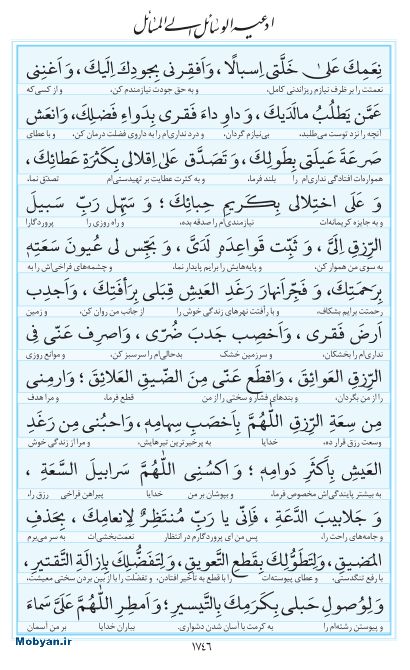 ادعیه الوسائل الی المسائل
نِعَمِكَ عَلیٰ خَلَّتی اِسبالًا، وَ اَفقِرنی بِجودِكَ اِلَیكَ، وَ اَغنِنی
نعمتت را بر ظرف نیازم ریزاندنی کامل، و به حق جودت نیازمندم کن، و از کسی‌که
عَمَّن یَطلُبُ مالَدَیكَ، وَ داوِ داءَ فَقری بِدَواءِ فَضلِكَ، وَانعَش
آنچه را نزد توست می‌طلبد، بی‌نیازم گردان، و درد نداری‌ام را به داروی فضلت درمان کن، و با عطای
صَرعَةَ عَیلَتی بِطَولِكَ، وَ تَصَدَّق عَلیٰ اِقلالی بِكَثرَةِ عَطائِكَ،
همواره‌ات افتادگی نداری‌ام را بلند فرما، و به کثرت عطایت بر تهیدستی‌ام تصدّق نما،
وَ عَلَی اختِلالی بِكَریمِ حِبائِكَ؛ وَ سَهِّل رَبِّ سَبیلَ
و به جایزه کریمانه‌ات نیازمندی‌ام را صدقه بده، و راه روزی را پروردگارا
الرِّزقِ اِلَیَّ، وَ ثَبِّت قَواعِدَهُ لَدَیَّ، وَ بَجِّس لی عُیونَ سَعَتِهِ
به سوی من هموار کن، و پایه‌هایش را برایم پایدار نما، و چشمه‌های فراخی‌اش را به
بِرَحمَتِكَ، وَ فَجِّر اَنهارَ رَغَدِ العَیشِ قِبَلی بِرَأفَتِكَ، وَ اَجدِب
رحمتت برایم بشکاف، و با رأفت نهرهای زندگی خوش را از جانب من روان کن، و زمین
اَرضَ فَقری، وَ اَخصِب جَدبَ ضُرّی، وَ اصرِف عَنّی فِی
نداری‌ام را بخشکان، و سرزمین خشک بدحالی‌ام را سرسبز کن، و موانع روزی
الرِّزقِ العَوائِقَ، وَ اقطَع عَنّی مِنَ الضّیقِ العَلائِقَ؛ وَ ارمِنی
را از من بگردان، و بندهای فشار و سختی را از من قطع فرما، و مرا هدف
مِن سِعَةِ الرِّزقِ اللّٰهُمَّ بِاَخصَبِ سِهامِهِ، وَ احبُنی مِن رَغَدِ
وسعت رزق قرار ده، خدایا به پرخیرترین تیرهایش، و مرا از زندگی خوش
العَیشِ بِاَكثَرِ دَوامِهِ؛ وَ اكسُنی اللّٰهُمَّ سَرابیلَ السَّعَةِ،
به بیشتر پایندگی‌اش مخصوص فرما، و بپوشان بر من خدایا پیراهن فراخی رزق را،
وَ جَلابیبَ الدَّعَةِ، فَاِنّی یا رَبِّ مُنتَظِرٌ لِاِنعامِكَ، بِحَذفِ
و جامه‌های راحت را، پس من ای پروردگارم در انتظار نعمت‌بخشی‌ات به سر می‌برم
المَضیقِ، وَ لِتَطَوُّلِكَ بِقَطعِ التَّعویقِ، وَ لِتَفَضُّلِكَ بِاِزالَةِ التَّقتیرِ،
با رفع تنگدستی، و عطای پیوسته‌ات را با قطع به تأخیر افتادن، و تفضلت را با از بین بردن سختی معیشت،
وَ لِوُصولِ حَبلی بِكَرَمِكَ بِالتَّیسیرِ؛ وَ اَمطِرِ اللّٰهُمَّ عَلَیَّ سَماءَ
و پیوستن رشته‌ام را به کرمت با آسان شدن دشواری. بباران خدایا بر من آسمان
١٧٤٦
Mobyan.ir